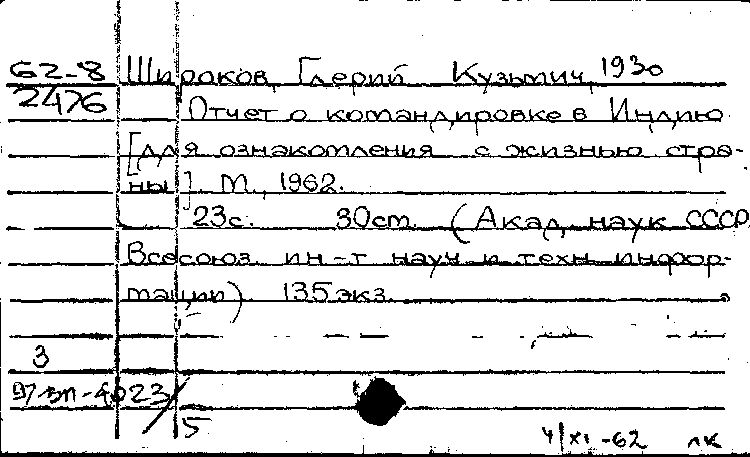 62-8 Широков, Глерий Кузьмич, 1930
2476 Отчет о командировке в Индию
[для ознакомления с жизнью стра-
ны]. М., 1962.
23с. 30см. (Акад. наук СССР
Всесоюз. ин-т науч и техн. инфор-
мации). 135 экз.
3
97-вп-4023/5
4/XI-62 лк